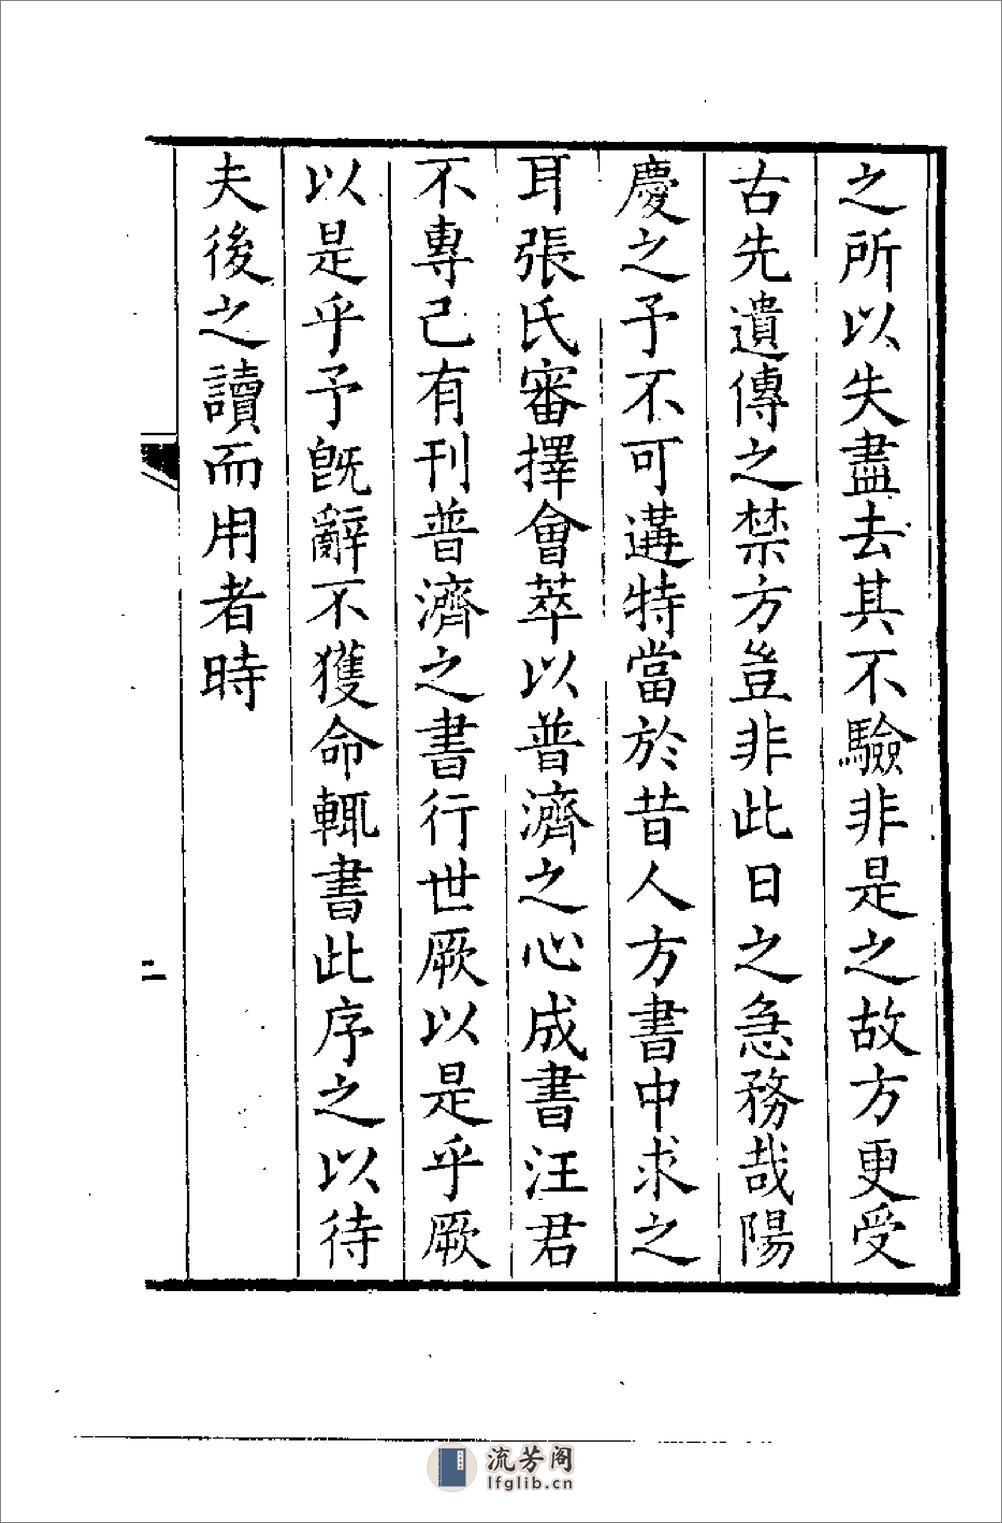 之所以失盡去其不驗非是之故方更受
古先遺傳之禁方豈非此日之急務哉陽
慶之予不可遘特當於昔人方書中求之
耳張氏審擇會萃以普濟之心成書汪君
不專己有刊普濟之書行世厥以是乎厥
以是乎予旣辭不獲命輒書此序之以待
夫後之讀而用者時
二
流芳阁
lfglib.cn